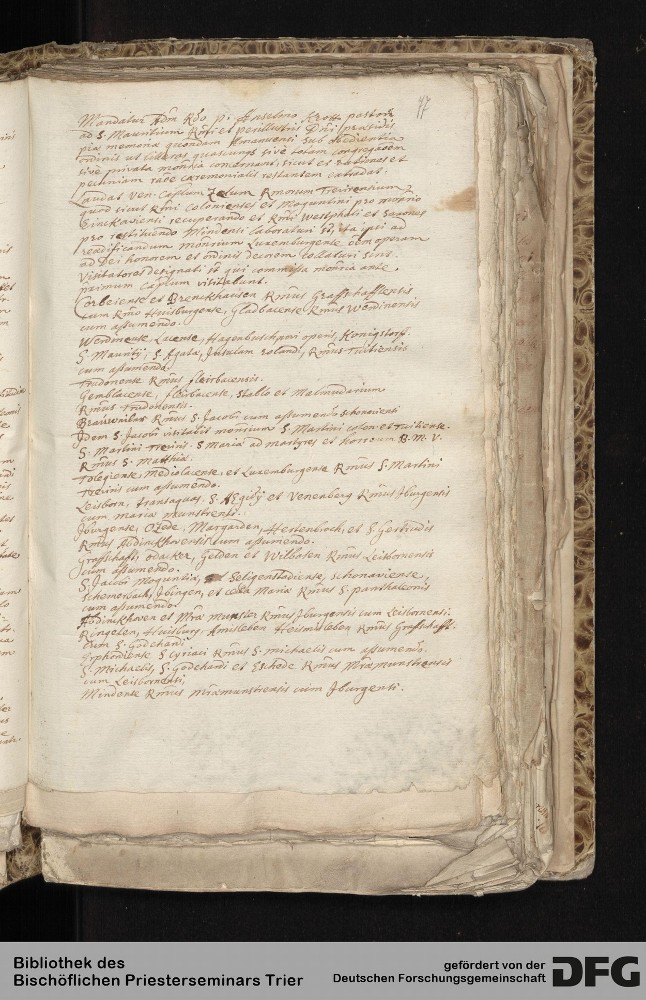 47
Mandatur Adm Rdo p. Anselmo Krott pastori
ad S. Mauritium Rmi et perillustris Dni praesidis
piae memoriae quondam Amanuensi sub obedientia
ordinis ut litteras quascunq sive totam congregaoem
sive privata monria concernant, sicut et rationes et
pecuniam rate caeremonialis restantem extradat.
Laudat Ven. Caplum Zelum Rmorum Trevirensium
quod sicut Rmi Colonienses et Moguntini pro monrio
recuperando et Rmi Westphali et Saxones
pro restituendo Mindensi laboraturi st, ita ipsi ad
readificandum monrium Luxemburgense oem operam
ad Dei honorem et ordinis decorem collaturi sint.
Visitatores designati st qui commissa monria ante
primum Caplum visitabunt.
Corbeiense et Brenckhausen Rmus Graffschaffensis
cum Rmo Huisburgense, Gladbacense Rmus Werdinensis
cum assumendo.
Werdinense, Lacense, Hagenbusch, Konigstorff,
S. Mauritij, S. Agatae, Insulam Rolandi, Rmus Tuitiensis
cum assumendo.
Trudonense Rmus fleirbacensis.
Gemblacense, fleirbacense, Stablo et Malmudarium
Rmus Trudonensis.
Brauweiler Rmus S. Jacobi cum assumendo Schonaviensi
Idem S. Jacobi visitabit monrium S. Martini colon. et Tuitiense.
S. Martini Treviris. S. Maria ad martyres et horreum B. M. V.
Rmus S. Matthiae.
Tolegiense, Mediolacense, et Luxemburgense Rmus S. Martini
Treviris cum assumendo.
Leisborn, transaquas, S. AEgidij et Venenberg Rmus Iburgensis
cum mariae munstrensi.
Iburgense, Osede, Margarden, Hertenbroch, et S. Gertrudis
Rmus Abdinckhovensis cum assumendo.
Groffschafft, Odacker, Gelden et Wilbasen Rmus Leisbornensis
cum assumendo.
S. Jacobi Moguntiae, et Seligenstadiense, Schonaviense,
Schemersbach, Ibingen, et cella Mariae Rmus S. panthaleonis
cum assumendo.
Abdinckhoven et Mariae munster Rmus Iburgensis cum Leisbornensi.
Ringelen, Huisburg, Amisleben Heinisleben Rmus Graffschafft.
cum S. Godehardi
Erphordiense S. Cyriaci Rmus S. michaelis cum assumendo.
S. Michaelis, S. Godehardi et Eschede Rmus Mariaemunstrensis
cum Leisbornensi,
Mindense Rmus mariaemunstrensis cum Iburgensi.
Bibliothek des
Bischöflichen Priesterseminars Trier
gefördert von der
Deutschen Forschungsgemeinschaft
DFG